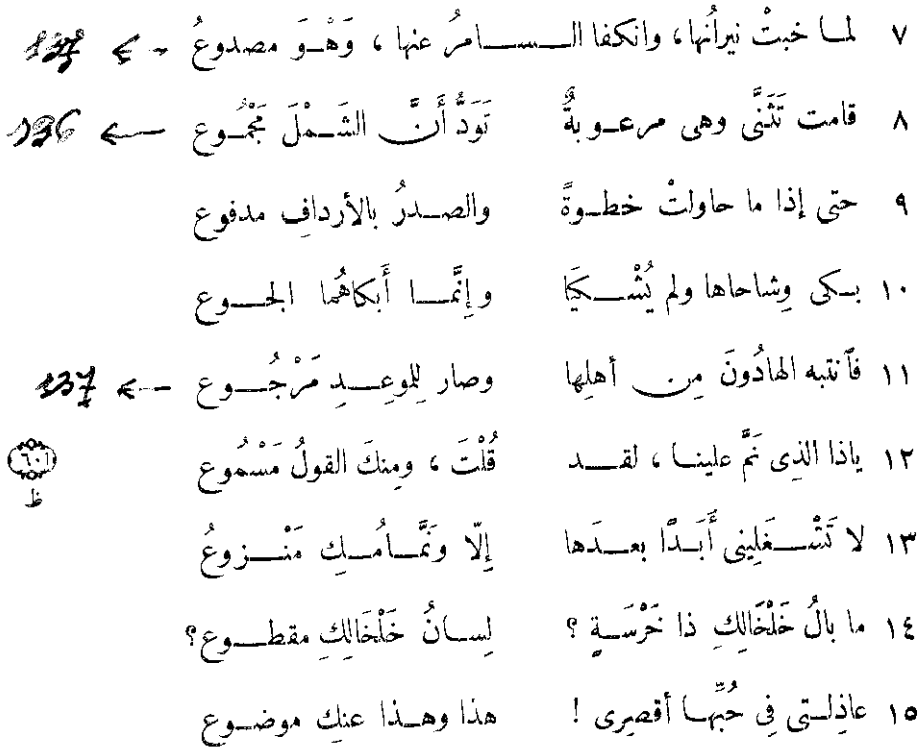 ٧ لما خبتْ نيرانُها، وانكفا السامرُ عنها ، وَهْوَ مصدوعُ ->
٨ قامت تَثَنَّى وهى مرعوبةٌ تَوَدُّ أَنَّ الشَمْلَ مَجْمُوع -> 136
٩ حتى إذا ما حاولتْ خطوةً والصدرُ بالأردافِ مدفوع
١٠ بكى وِشاحاها ولم يُشْكَيَا وإنَّما أَبكاهُما الجوع
١١ فآنتبه الهادُونَ مِن أهلِها وصار لِلموعدِ مَرْجُوع -> 137
١٢ ياذا الذِى نَمَّ علينا ، لقد قُلْتَ ، ومِنكَ القولُ مَسْمُوع ٦٠١ ظ
١٣ لا تَشْغَلِينى أَبَدًا بعدَها إلّا ونَمَّامُكِ مَنْزوعُ
١٤ ما بالُ خَلْخَالكِ ذا خَرْسَةٍ ؟ لِسانُ خَلْخَالكِ مقطوع؟
١٥ عاذِلتى فى حُبِّها أقصِرى ! هذا وهذا عنكِ موضوع